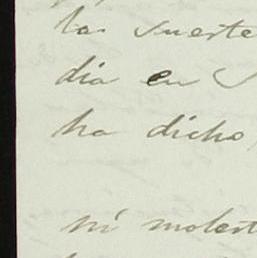 la suerte
dia en
ha dicho,
ni molest